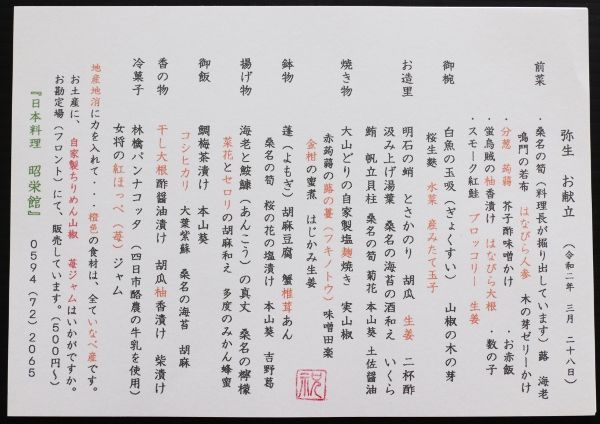 弥生　お献立　（令和二年　三月　二十八日）
前菜　・桑名の筍（料理長が掘り出しています）蕗　海老
鳴門の若布　はなびら人参　木の芽ゼリーかけ
・分葱　蒟蒻　芥子酢味噌かけ　・お赤飯
・蛍烏賊の柚香漬け　はなびら大根　・数の子
・スモーク紅鮭　ブロッコリー　生姜
御椀　白魚の玉吸（ぎょくすい）　山椒の木の芽
桜生麩　水菜　産みたて玉子
お造里　明石の蛸　とさかのり　胡瓜　生姜　二杯酢
汲み上げ湯葉　桑名の海苔の酒和え　いくら
鮪　帆立貝柱　桑名の筍　菊花　本山葵　土佐醤油
焼き物　大山どりの自家製塩麹焼き　実山椒
赤蒟蒻の蕗の薹（フキノトウ）味噌田楽
金柑の蜜煮　はじかみ生姜
鉢物　蓬（よもぎ）胡麻豆腐　蟹椎茸あん
桑名の筍　桜の花の塩漬け　本山葵　吉野葛
揚げ物　海老と鮟鱇（あんこう）の真丈　桑名の檸檬
菜花とセロリの胡麻和え　多度のみかん蜂蜜
御飯　鯛梅茶漬け　本山葵
コシヒカリ　大葉紫蘇　桑名の海苔　胡麻
香の物　干し大根酢醤油漬け　胡瓜柚香漬け　柴漬け
冷菓子　林檎パンナコッタ　（四日市酪農の牛乳を使用）
女将の紅ほっぺ（苺）ジャム
地産地消に力を入れて・・・橙色の食材は、全ていなべ産です。
お土産に、自家製ちりめん山椒　苺ジャムはいかがですか。
お勘定場（フロント）にて、販売しています。（500円～）
『日本料理　昭栄館』　0594（72）2065
祝